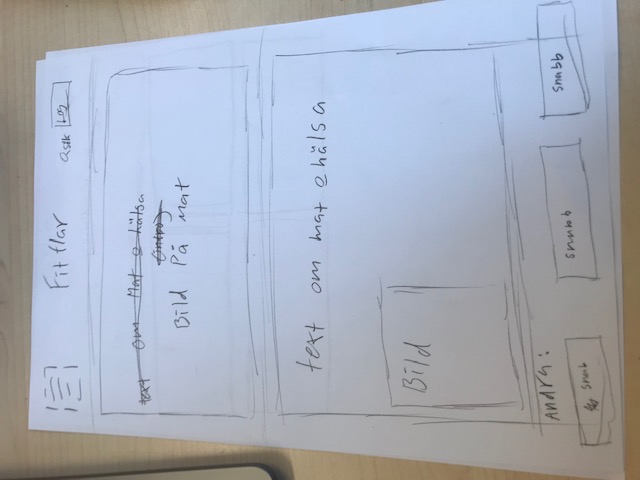 Fitflar
Sök Log
text om Mat o hälsa
(intro)
Bild På mat
text om mat o hälsa
Bild
Andra:
snab
snabb
snabb